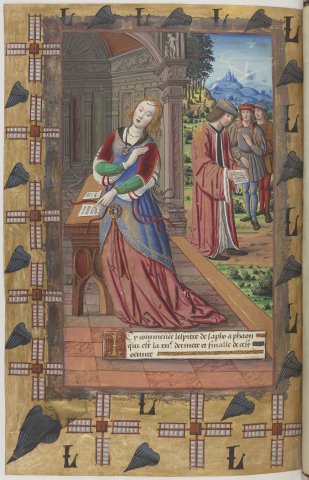 L
L
L
L
L
L
L
L
L
L
L
Cy commence lepitre de sapho a phaon
qui est la xxi.e derniere et finalle de cest
oeuvre
L
L
L